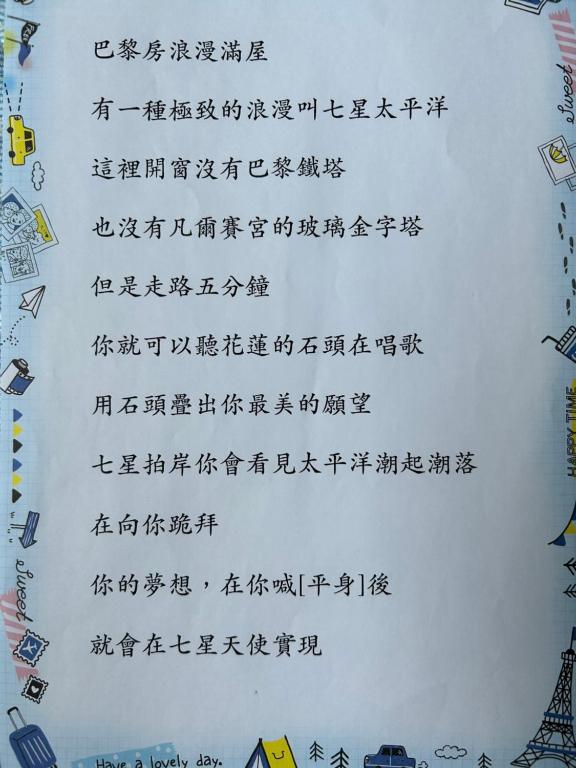 巴黎房浪漫滿屋
有一種極致的浪漫叫七星太平洋
這裡開窗沒有巴黎鐵塔
也沒有凡爾賽宮的玻璃金字塔
但是走路五分鐘
你就可以聽花蓮的石頭在唱歌
用石頭疊出你最美的願望
七星拍岸你會看見太平洋潮起潮落
在向你跪拜
你的夢想，在你喊[平身]後
就會在七星天使實現
Sweet
HAPPY TIME
Sweet
Have a lovely day.